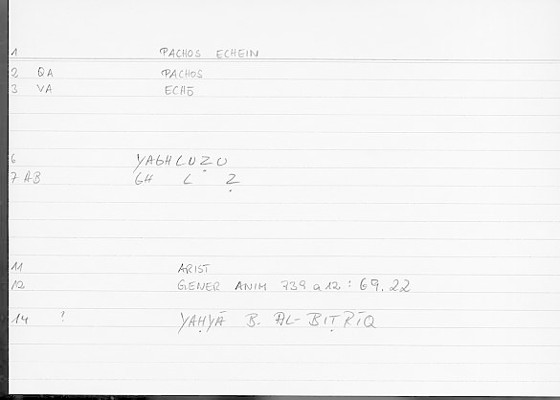 1 PACHOS ECHEIN
2 QA PACHOS
3 VA ECHŌ
6 YAGHLUẒU
7 AB GH L Ẓ
11 ARIST
12 GENER ANIM 739 a 12 : 69.22
14 ? YAḤYĀ B. AL-BIṬRĪQ